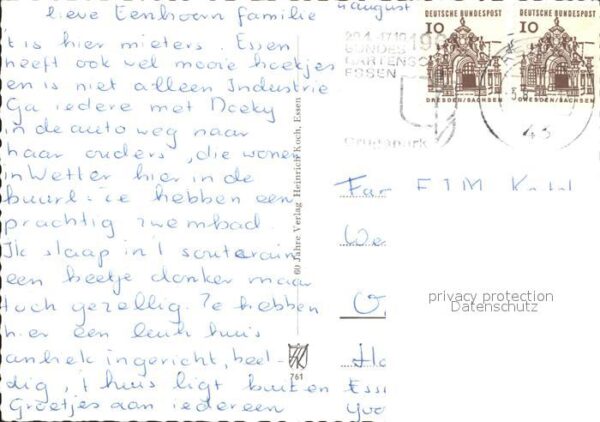 lieve Eenhoorn familie
4 august
t is hier mieters. Essen
heeft ook vel mooie hoekjes
en is niet alleen Industrie
Ga iedere met Docky
in de auto weg naar
haar ouders, die wonen
in Wetter hier in de
buurt. Ze hebben een
prachtig zwembad.
Ik slaap in 't souterrain
een beetje donker maar
toch gezellig. Ze hebben
hier een leuk huis
antiek ingericht, beel-
dig, 't huis ligt buiten
Groetjes aan iedereen
60 Jahre Verlag Heinrich Koch, Essen
761
29.4.-17.10.1965
BUNDES
GARTENSCHAU
ESSEN
Grugapark
DEUTSCHE BUNDESPOST
10
DRESDEN/SACHSEN
DEUTSCHE BUNDESPOST
10
DRESDEN/SACHSEN
43
Fam
privacy protection
Datenschutz